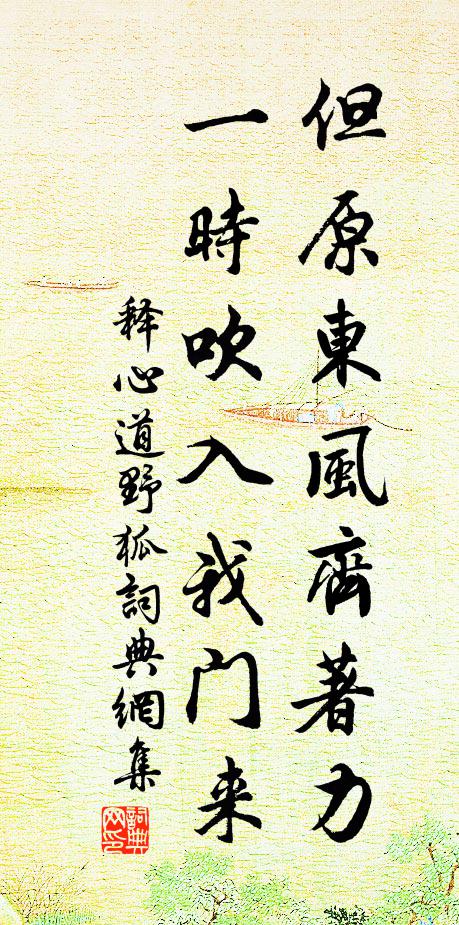 但原東風齊著力
一時吹入我门来
释心道野狐詞典網集
詞典
网印